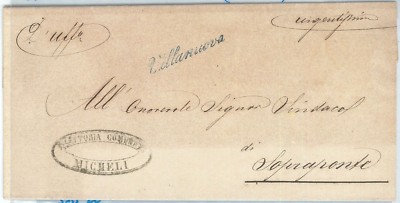 D'uffo
urgentissima
Villanuova
All'
Onorevole Signor Sindaco
di
Sopraponte
ESATTORIA COMUNALE
MICHELI